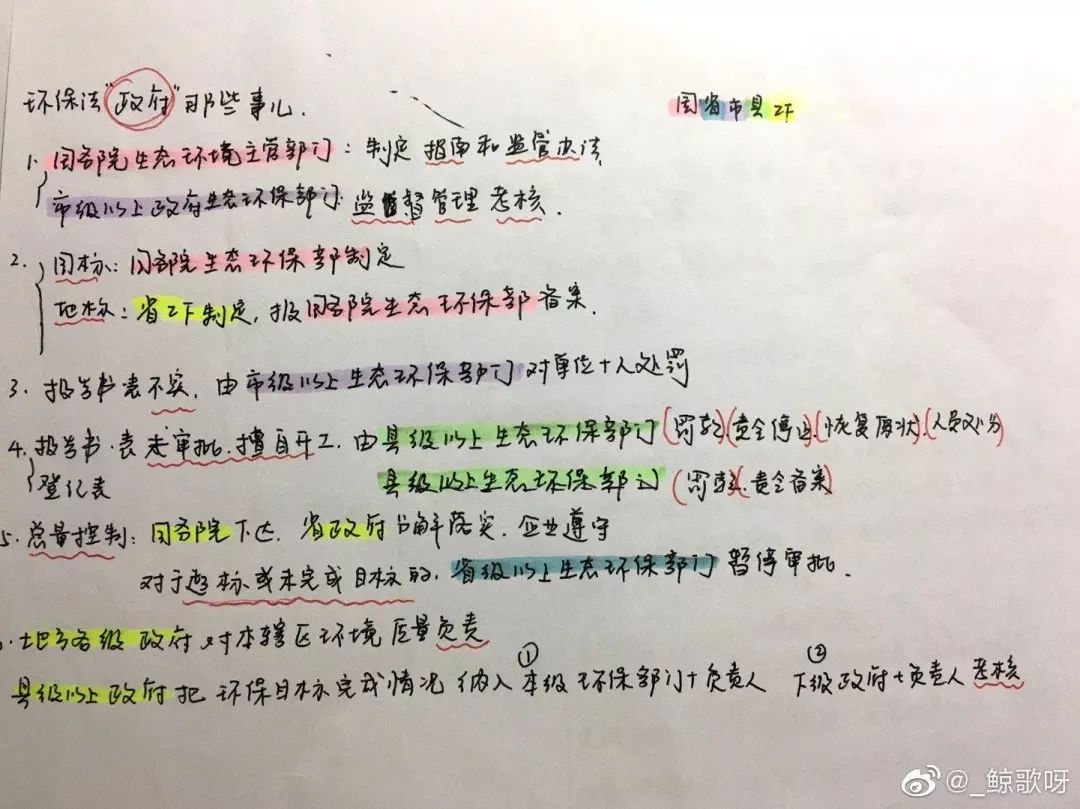 环保法“政府”那些事儿.
国省市县ZF
1. 国务院生态环境主管部门: 制定 指南和监管办法
市级以上政府生态环保部门. 监督管理 考核.
2. 国标: 国务院生态环保部制定
地标: 省ZF制定, 报国务院生态环保部备案.
3. 报告书表不实, 由市级以上生态环保部门对单位+人处罚
4. 报告书·表未审批, 擅自开工. 由县级以上生态环保部门(罚款)(责令停止)(恢复原状)(人员处分)
登记表 县级以上生态环保部门 (罚款)(责令备案)
5. 总量控制: 国务院下达, 省政府分解落实. 企业遵守
对于超标或未完成目标的, 省级以上生态环保部门暂停审批.
地方各级政府对本辖区环境质量负责
① ②
县级以上政府把环保目标完成情况纳入本级环保部门+负责人 下级政府+负责人考核
@_鲸歌呀